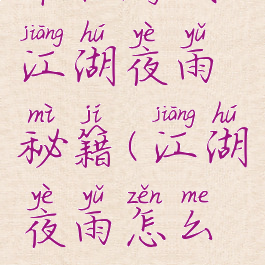 jiāng hú yè yǔ
江湖夜雨
mì jí jiāng hú
秘籍(江湖
yè yǔ zěn me
夜雨怎么